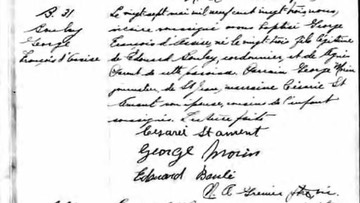 B. 31
George
François d'Assise
Le vingt-sept mai mil neuf cent vingt trois nous,
vicaire soussigné avons baptisé George
François d'Assise, né le vingt trois fils légitime
de Edouard, cordonnier, et de
de cette paroisse. Parrain George Morin
journalier, de St Jean, marraine Césarée St
Amant son épouse, cousins de l'enfant
soussignés. Lecture faite
Cesarée St ament
George Morin
Edouard